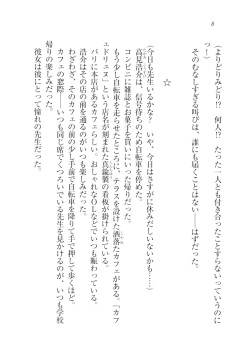 8
（よりどりみどり!?　何人!?　たった一人とも付き合ったことすらないっていうのに
っ！）
そのむなしすぎる叫びは、誰にも届くことはない――はずだった。
☆
（今日も先生いるかな？　いや、今日はさすがに休みだしいないかも……）
高見浩介は、信号待ちのため自転車を停めた。
コンビニに雑誌とお菓子を買いにいった帰りだった。
もう少し自転車を走らせたところに、テラスを設けた洒落たカフェがある。「カフ
ェドリィヌ」という店名が刻まれた真鍮製の看板が掛けられている。
パリに本店があるカフェらしい。おしゃれなＯＬなどでいつも賑わっている。
浩介はその店の前を通るのがいつも楽しみだった。
わざわざ、そのカフェの前の少し手前で自転車を降りて、押して歩くほど。
カフェの窓際――いつも同じ席でくつろいでいる先生を見かけるのが、いつも学校
帰りの楽しみだった。
彼女は彼にとって憧れの先生だった。